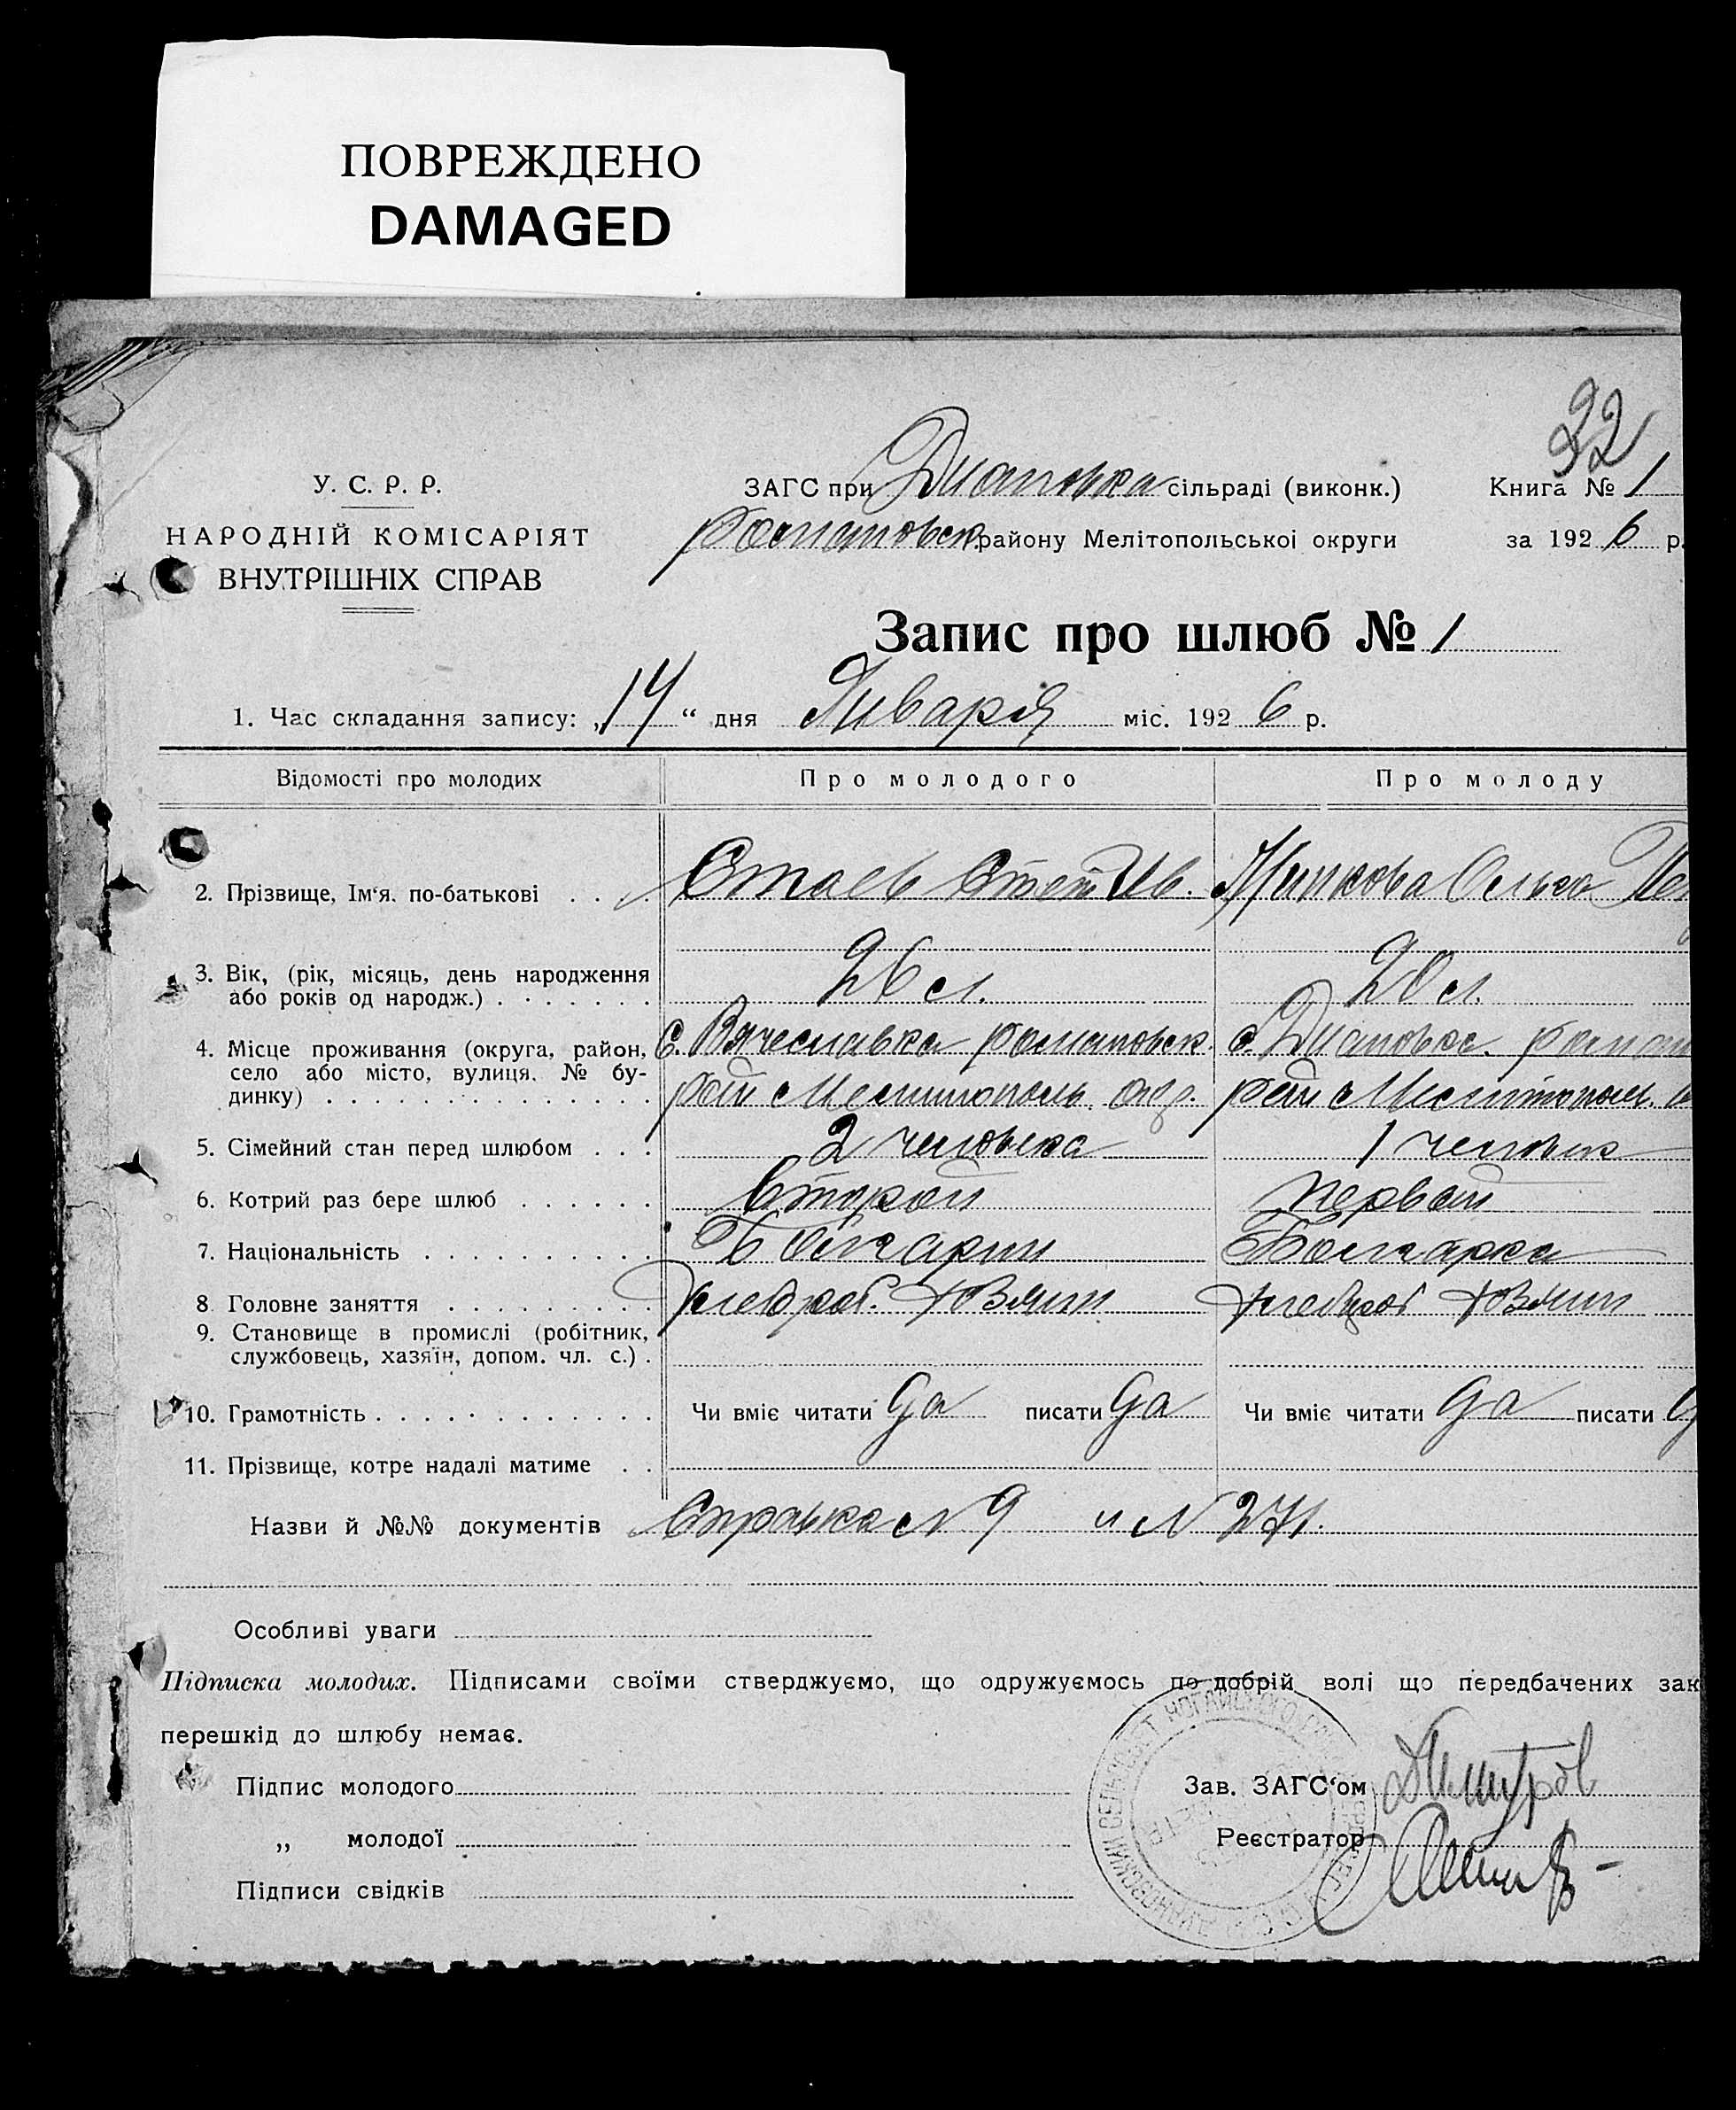 ПОВРЕЖДЕНО
DAMAGED
32
У. С. Р. Р.
НАРОДНІЙ КОМІСАРІЯТ
ВНУТРІШНІХ СПРАВ
ЗАГС при Диановка сільраді (виконк.)
Романовск. району Мелітопольської округи
Книга № 1
за 1926 р.
Запис про шлюб № 1
1. Час складання запису: „14“ дня Января міс. 1926 р.
Відомості про молодих Про молодого Про молоду
2. Прізвище, Ім‘я. по-батькові . . . Стаев Степ Ив. Ольга
3. Вік, (рік, місяць, день народження 26 л. 20 л.
або років од народж.) . . . . . . .
4. Місце проживання (округа, район, С. Вячеславка Романовск. с. Диановка. Роман
село або місто, вулиця. № бу- рай Мелитополь. окр. рай Мелитополь.
динку) . . . . . . . . . . . . . .
5. Сімейний стан перед шлюбом . . . 2 человека 1 человек
6. Котрий раз бере шлюб . . . . . . Второй первый
7. Національність . . . . . . . . . . Болгарин Болгарка
8 Головне заняття . . . . . . . . . Хлеброб. хозяин Хлебороб хозяин
9. Становище в промислі (робітник,
службовець, хазяїн, допом. чл. с.) .
10. Грамотність . . . . . . . . . . . . Чи вміє читати да писати да Чи вміє читати да писати
11. Прізвище, котре надалі матиме . .
Назви й №№ документів Справка N 9 и N 271.
Особливі уваги
Підписка молодих. Підписами своїми стверджуємо, що одружуємось по добрій волі що передбачених зак
перешкід до шлюбу немає.
Підпис молодого
Зав. ЗАГС‘ом
„ молодої
Реєстратор
Підписи свідків